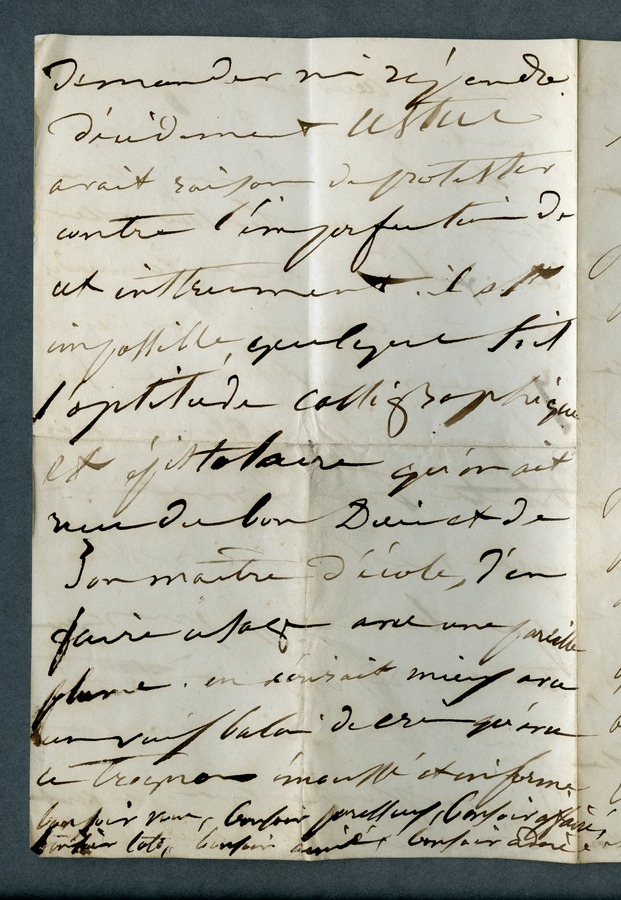 demander ni répondre.
décidement
avait raison de protester
contre l'imperfection de
cet instrument. il est
impossible, quelque soit
l'aptitude calligraphique
et épistolaire qu'on ait
reçue du bon Dieu et de
son maitre d'école, d'en
faire usage avec une pareille
plume. on écrirait mieux avec
un vieux balai de crin qu'avec
ce trognon émoussé et informe
bonsoir vous, bonsoir paresseux, bonsoir affairé,
bonsoir toto, bonsoir aimé, bonsoir adoré